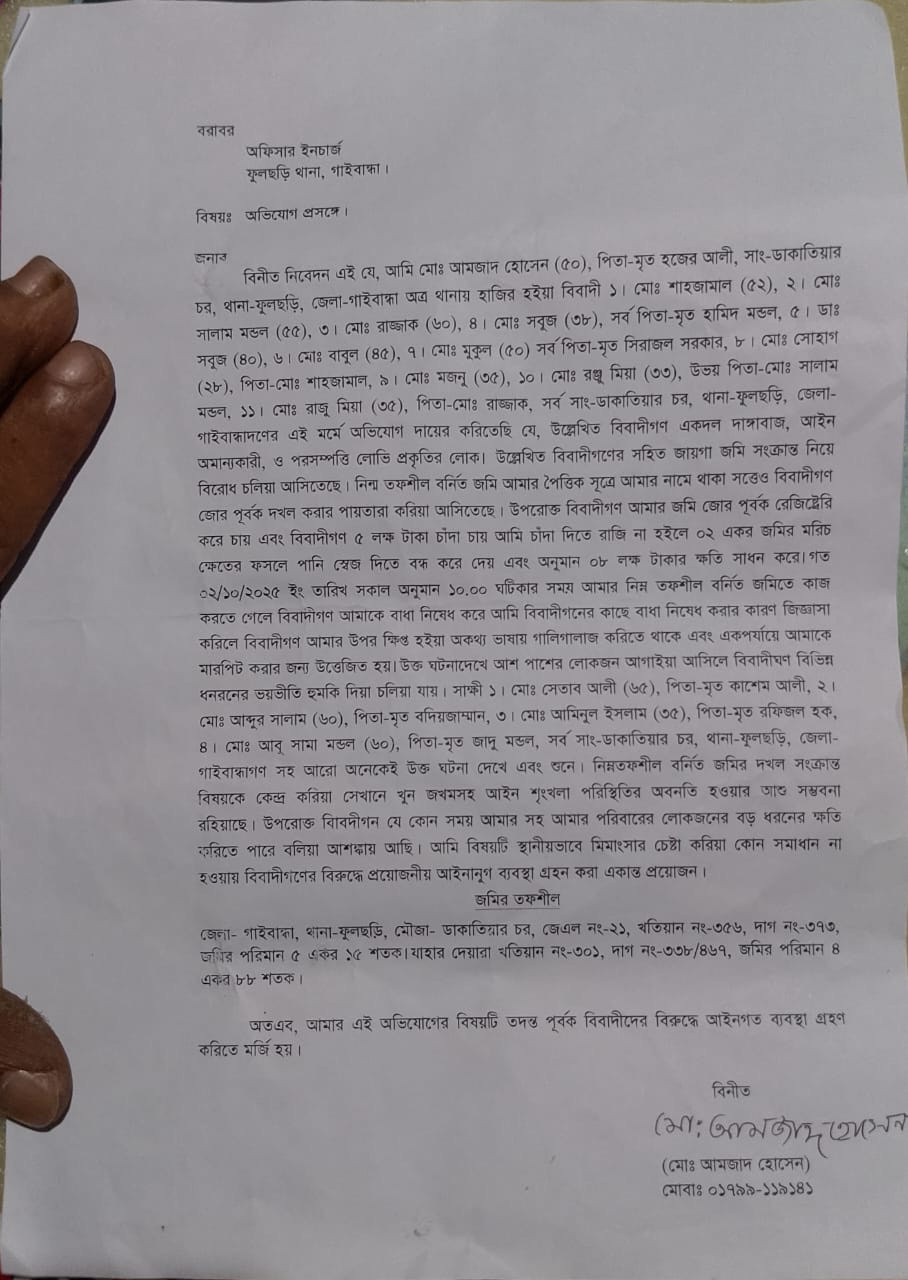 বরাবর
অফিসার ইনচার্জ
ফুলছড়ি থানা, গাইবান্ধা।
বিষয়ঃ অভিযোগ প্রসঙ্গে।
জনাব
বিনীত নিবেদন এই যে, আমি মোঃ আমজাদ হোসেন (৫০), পিতা-মৃত হজের আলী, সাং-ডাকাতিয়ার
চর, থানা-ফুলছড়ি, জেলা-গাইবান্ধা অত্র থানায় হাজির হইয়া বিবাদী ১। মোঃ শাহজামাল (৫২), ২। মোঃ
সালাম মন্ডল (৫৫), ৩। মোঃ রাজ্জাক (৬০), ৪। মোঃ সবুজ (৩৮), সর্ব পিতা-মৃত হামিদ মন্ডল, ৫। ডাঃ
সবুজ (৪০), ৬। মোঃ বাবুল (৪৫), ৭। মোঃ মুকুল (৫০) সর্ব পিতা-মৃত সিরাজল সরকার, ৮। মোঃ সোহাগ
(২৮), পিতা-মোঃ শাহজামাল, ৯। মোঃ মজনু (৩৫), ১০। মোঃ রঞ্জু মিয়া (৩৩), উভয় পিতা-মোঃ সালাম
মন্ডল, ১১। মোঃ রাজু মিয়া (৩৫), পিতা-মোঃ রাজ্জাক, সর্ব সাং-ডাকাতিয়ার চর, থানা-ফুলছড়ি, জেলা-
গাইবান্ধাদণের এই মর্মে অভিযোগ দায়ের করিতেছি যে, উল্লেখিত বিবাদীগণ একদল দাঙ্গাবাজ, আইন
অমান্যকারী, ও পরসম্পত্তি লোভি প্রকৃতির লোক। উল্লেখিত বিবাদীগণের সহিত জায়গা জমি সংক্রান্ত নিয়ে
বিরোধ চলিয়া আসিতেছে। নিন্ম তফশীল বর্নিত জমি আমার পৈত্তিক সূত্রে আমার নামে থাকা সত্তেও বিবাদীগণ
জোর পূর্বক দখল করার পায়তারা করিয়া আসিতেছে। উপরোক্ত বিবাদীগণ আমার জমি জোর পূর্বক রেজিষ্ট্রেরি
করে চায় এবং বিবাদীগণ ৫ লক্ষ টাকা চাঁদা চায় আমি চাঁদা দিতে রাজি না হইলে ০২ একর জমির মরিচ
ক্ষেতের ফসলে পানি স্বেজ দিতে বন্ধ করে দেয় এবং অনুমান ০৮ লক্ষ টাকার ক্ষতি সাধন করে। গত
০২/১০/২০২৫ ইং তারিখ সকাল অনুমান ১০.০০ ঘটিকার সময় আমার নিম্ন তফশীল বর্নিত জমিতে কাজ
করতে গেলে বিবাদীগণ আমাকে বাধা নিষেধ করে আমি বিবাদীগনের কাছে বাধা নিষেধ করার কারণ জিজ্ঞাসা
করিলে বিবাদীগণ আমার উপর ক্ষিপ্ত হইয়া অকথ্য ভাষায় গালিগালাজ করিতে থাকে এবং একপর্যায়ে আমাকে
মারপিট করার জন্য উত্তেজিত হয়। উক্ত ঘটনাদেখে আশ পাশের লোকজন আগাইয়া আসিলে বিবাদীঘণ বিভিন্ন
ধনরনের ভয়ভীতি হুমকি দিয়া চলিয়া যায়। সাক্ষী ১। মোঃ সেতাব আলী (৬৫), পিতা-মৃত কাশেম আলী, ২।
মোঃ আব্দুর সালাম (৬০), পিতা-মৃত বদিয়জাম্মান, ৩। মোঃ আমিনুল ইসলাম (৩৫), পিতা-মৃত রফিজল হক,
৪। মোঃ আবু সামা মন্ডল (৬০), পিতা-মৃত জাদু মন্ডল, সর্ব সাং-ডাকাতিয়ার চর, থানা-ফুলছড়ি, জেলা-
গাইবান্ধাগণ সহ আরো অনেকেই উক্ত ঘটনা দেখে এবং শুনে। নিন্নতফশীল বর্নিত জমির দখল সংক্রান্ত
বিষয়কে কেন্দ্র করিয়া সেখানে খুন জখমসহ আইন শৃংখলা পরিস্থিতির অবনতি হওয়ার আশু সম্ভবনা
রহিয়াছে। উপরোক্ত বিাবদীগন যে কোন সময় আমার সহ আমার পরিবারের লোকজনের বড় ধরনের ক্ষতি
করিতে পারে বলিয়া আশঙ্কায় আছি। আমি বিষয়টি স্থানীয়ভাবে মিমাংসার চেষ্টা করিয়া কোন সমাধান না
হওয়ায় বিবাদীগণের বিরুদ্ধে প্রয়োজনীয় আইনানুগ ব্যবস্থা গ্রহন করা একান্ত প্রয়োজন।
জমির তফশীল
জেলা- গাইবান্ধা, থানা-ফুলছড়ি, মৌজা- ডাকাতিয়ার চর, জেএল নং-২১, খতিয়ান নং-৩৫৬, দাগ নং-৩৭৩,
জমির পরিমান ৫ একর ১৫ শতক। যাহার দেয়ারা খতিয়ান নং-৩০১, দাগ নং-৩৩৮/৪৬৭, জমির পরিমান ৪
একর ৮৮ শতক।
অতএব, আমার এই অভিযোগের বিষয়টি তদন্ত পূর্বক বিবাদীদের বিরুদ্ধে আইনগত ব্যবস্থা গ্রহণ
করিতে মর্জি হয়।
বিনীত
মো: আমজাদ হোসেন
(মোঃ আমজাদ হোসেন)
মোবাঃ ০১৭৯৯-১১৯১৪১